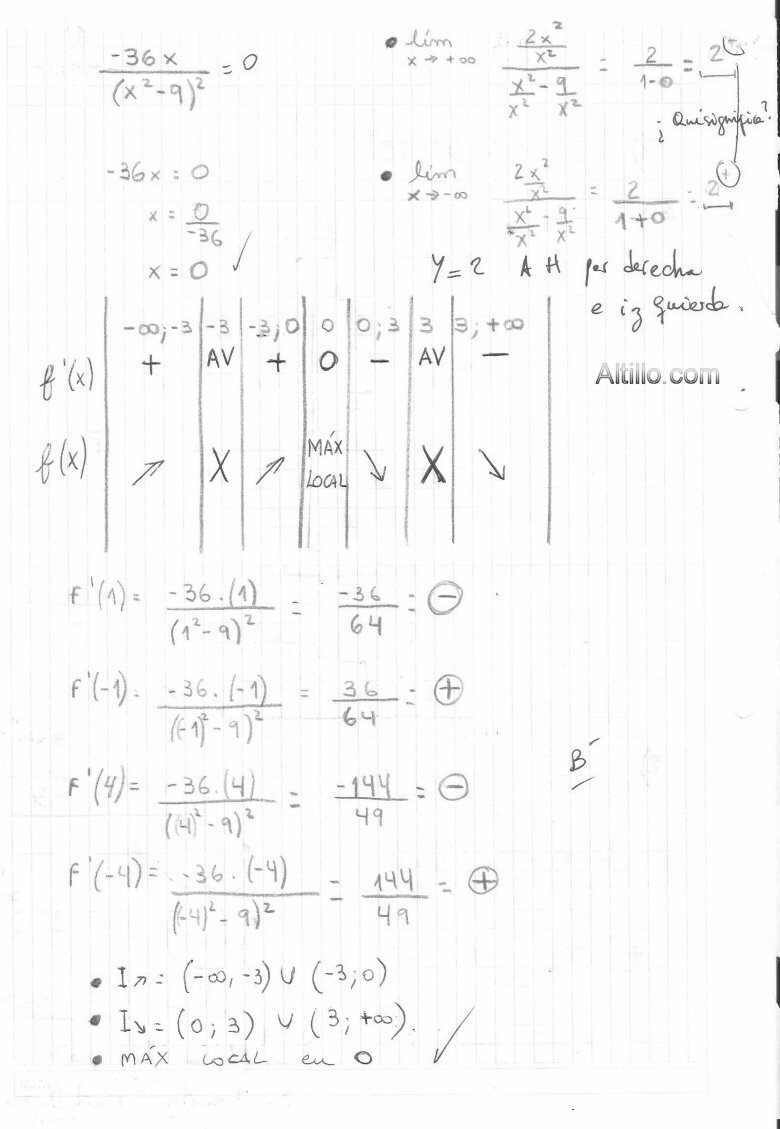 -36x / (x² - 9)² = 0
-36x = 0
x = 0 / -36
x = 0 ✓
• lím x → +∞ (2x²/x²) / (x²/x² - 9/x²) = 2 / 1-0 = 2⁺
¿ Qué significa?
• lím x → -∞ (2x²/x²) / (x²/x² - 9/x²) = 2 / 1+0 = 2⁺
Y = 2 A H por derecha
e izquierda.
-∞;-3 | -3 | -3;0 | 0 | 0;3 | 3 | 3;+∞
f'(x) + | AV | + | 0 | - | AV | -
f(x) ↗ | X | ↗ | MÁX LOCAL | ↘ | X | ↘
Altillo.com
F'(1) = -36.(1) / (1² - 9)² = -36 / 64 = ⊖
F'(-1) = -36.(-1) / ((-1)² - 9)² = 36 / 64 = ⊕
B⁻
F'(4) = -36.(4) / ((4)² - 9)² = -144 / 49 = ⊖
F'(-4) = -36.(-4) / ((-4)² - 9)² = 144 / 49 = ⊕
• I↗ = (-∞, -3) ∪ (-3;0)
• I↘ = (0;3) ∪ (3;+∞).
• MÁX LOCAL en 0 ✓